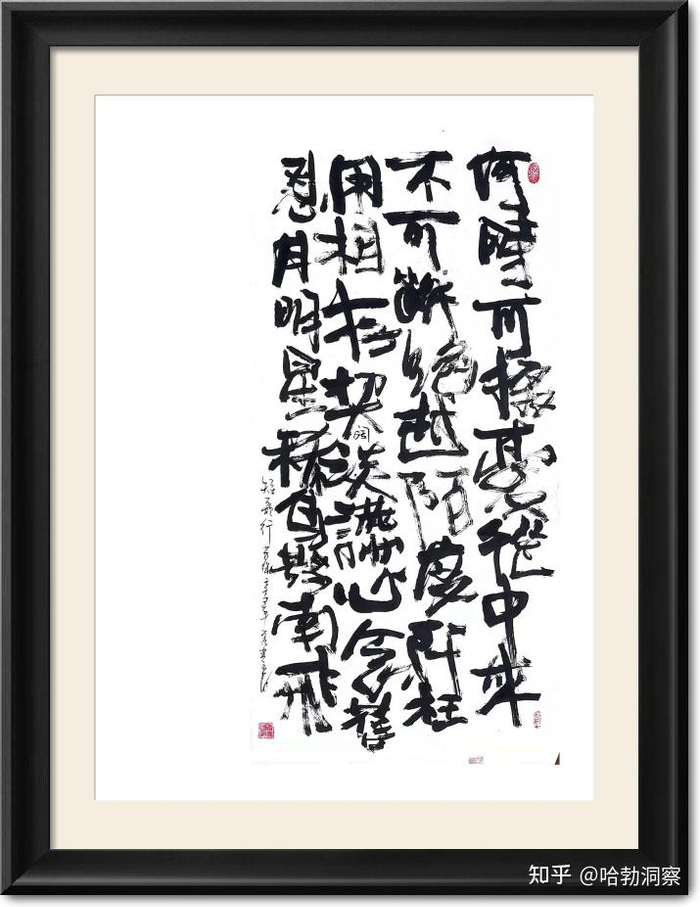 何時可掇憂從中來
不可斷絕越陌度阡枉
用相存契阔談讌心念舊
恩月明星稀烏鵲南飛
短歌行
知乎 @哈勃洞察